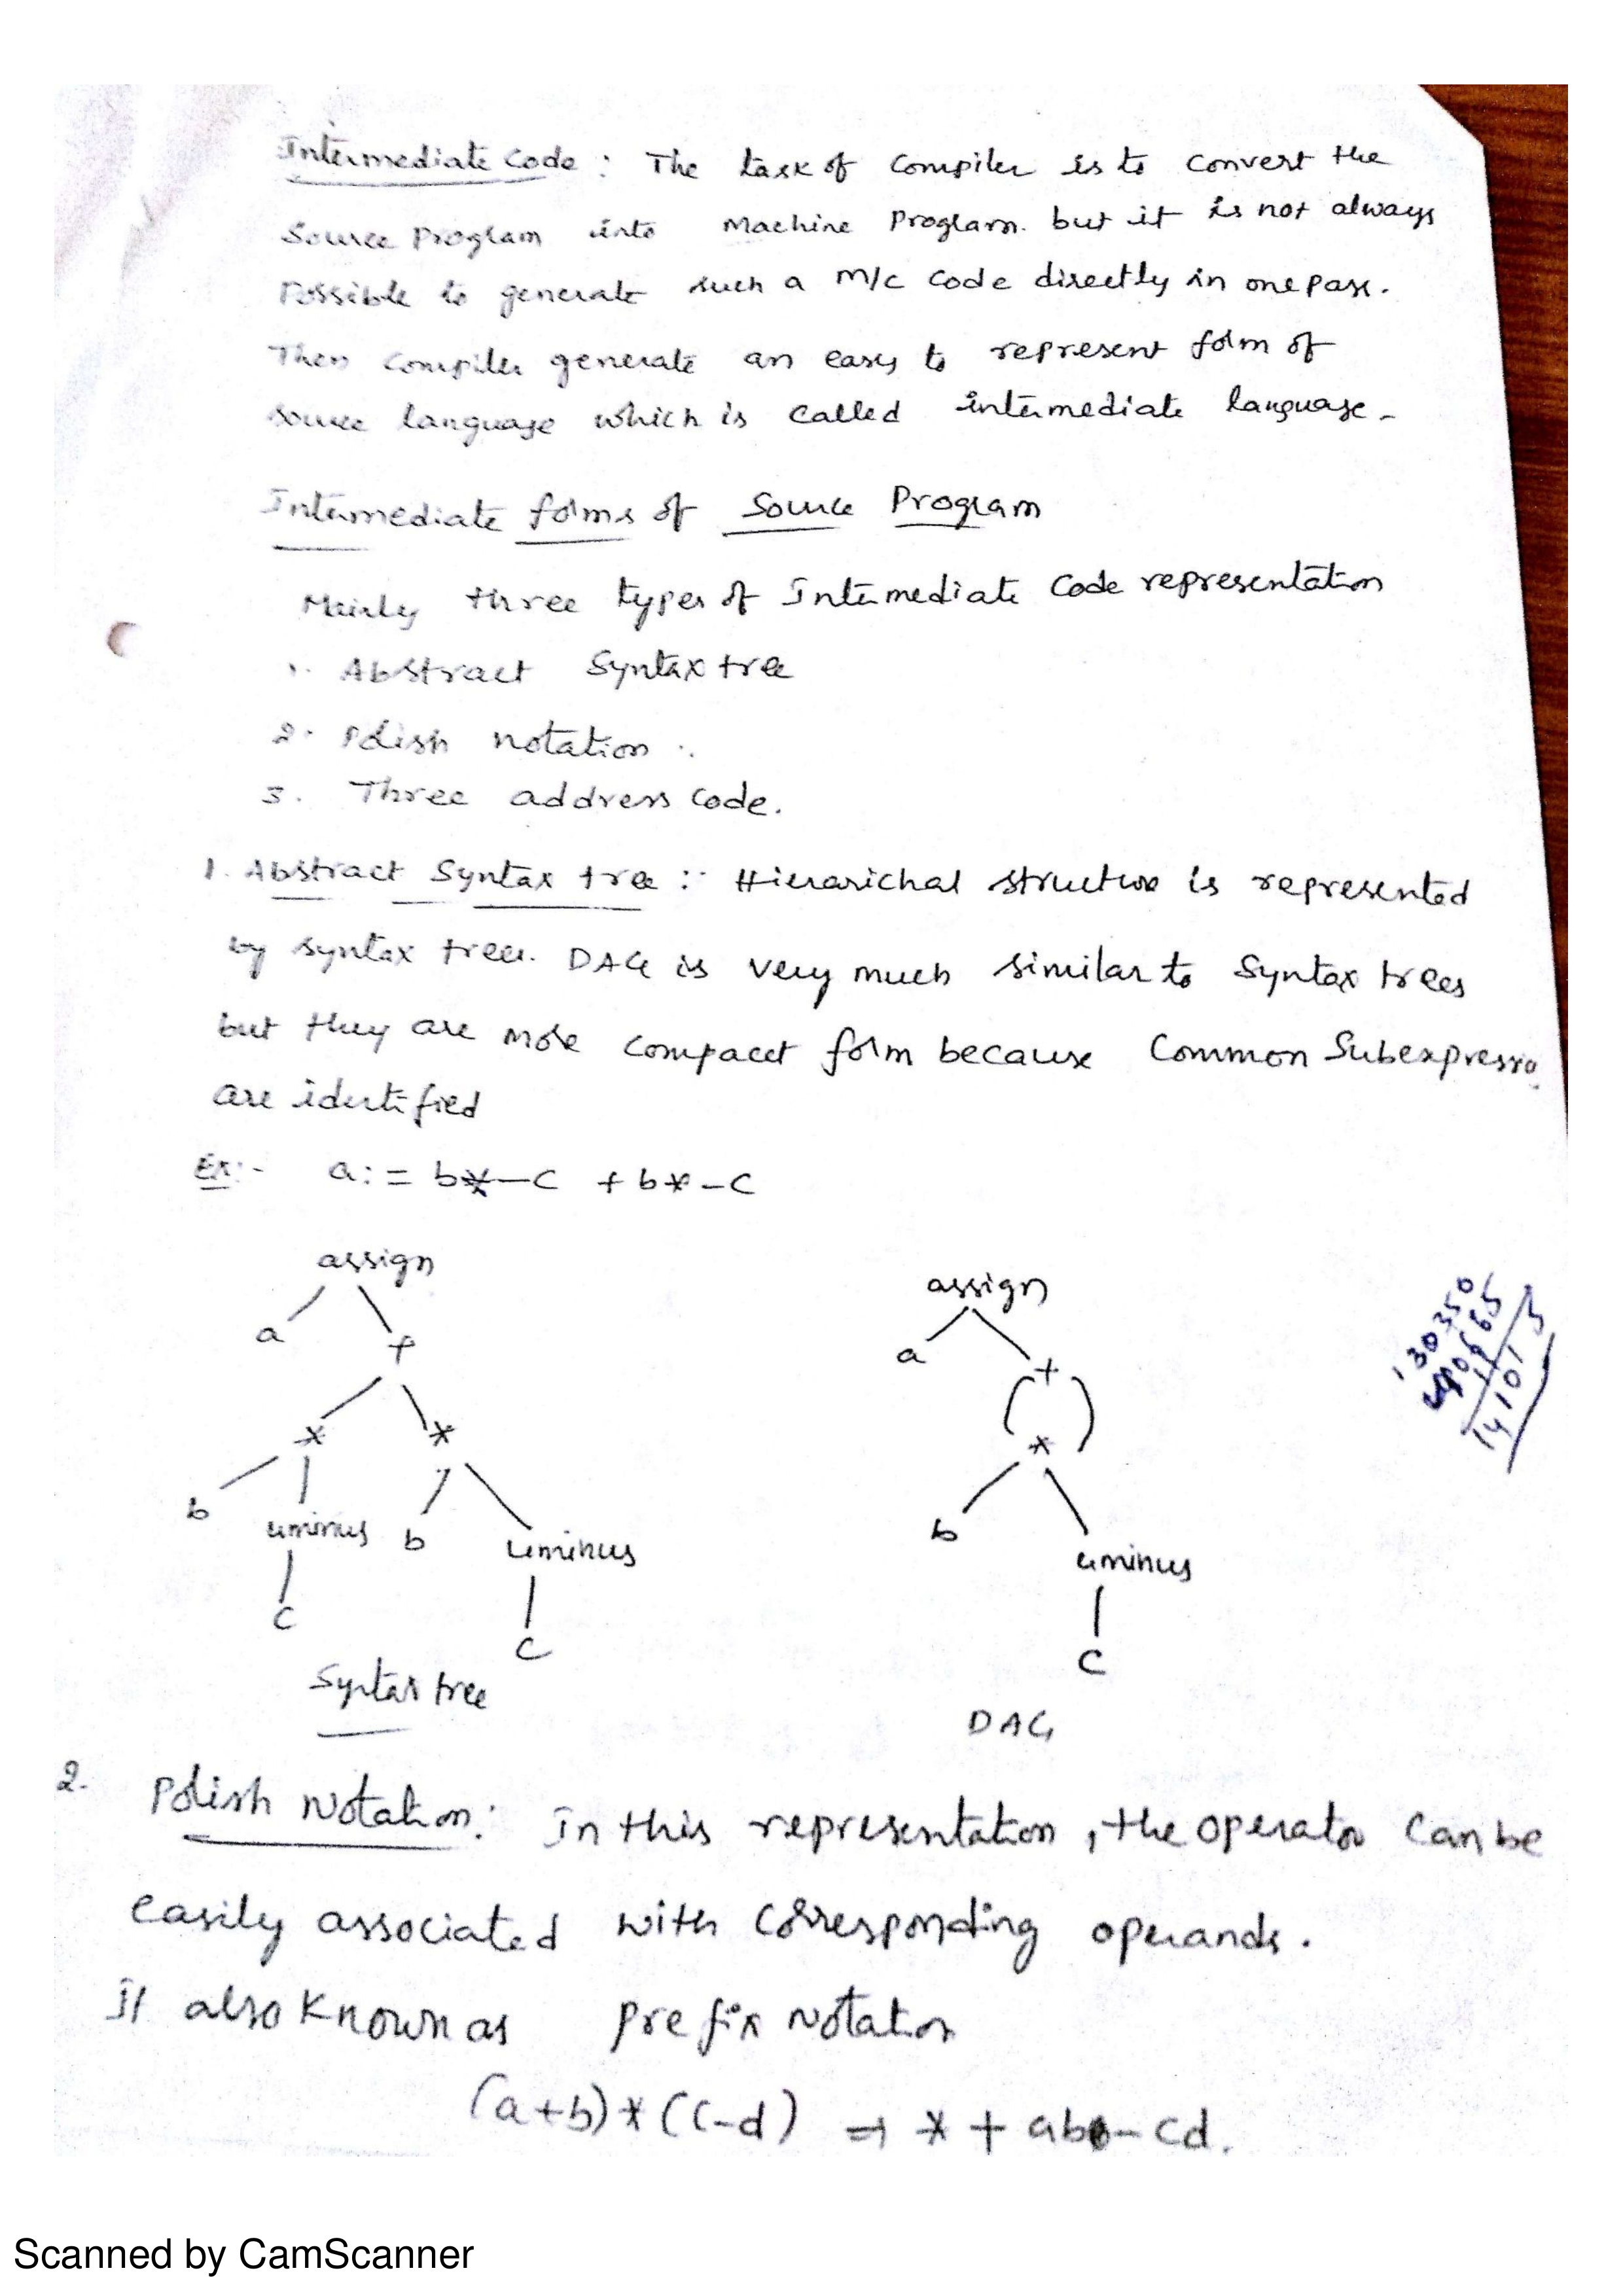 Intermediate Code : The task of Compiler is to convert the
Source Program into Machine Program. but it is not always
Possible to generate such a M/C Code directly in one pass.
Then Compiler generate an easy to represent form of
source language which is called intermediate language.
Intermediate forms of Source Program
Mainly three types of Intermediate Code representation
1. Abstract Syntax tree
2. Polish notation.
3. Three address Code.
1. Abstract Syntax tree :- Hierarichal structure is represented
by syntax trees. DAG is very much similar to Syntax trees
but they are more compacet form because Common Subexpressio
are identified
Ex:- a: = b*-c + b*-c
assign
a +
* *
b uminus b uminus
c c
Syntax tree
assign
a +
*
b uminus
c
DAG
130350
14101
2. Polish Notation: In this representation, the operator Can be
easily associated with corresponding operands.
It also Known as prefix Notation
(a+b)*(c-d) ⇒ * + ab - cd.
Scanned by CamScanner